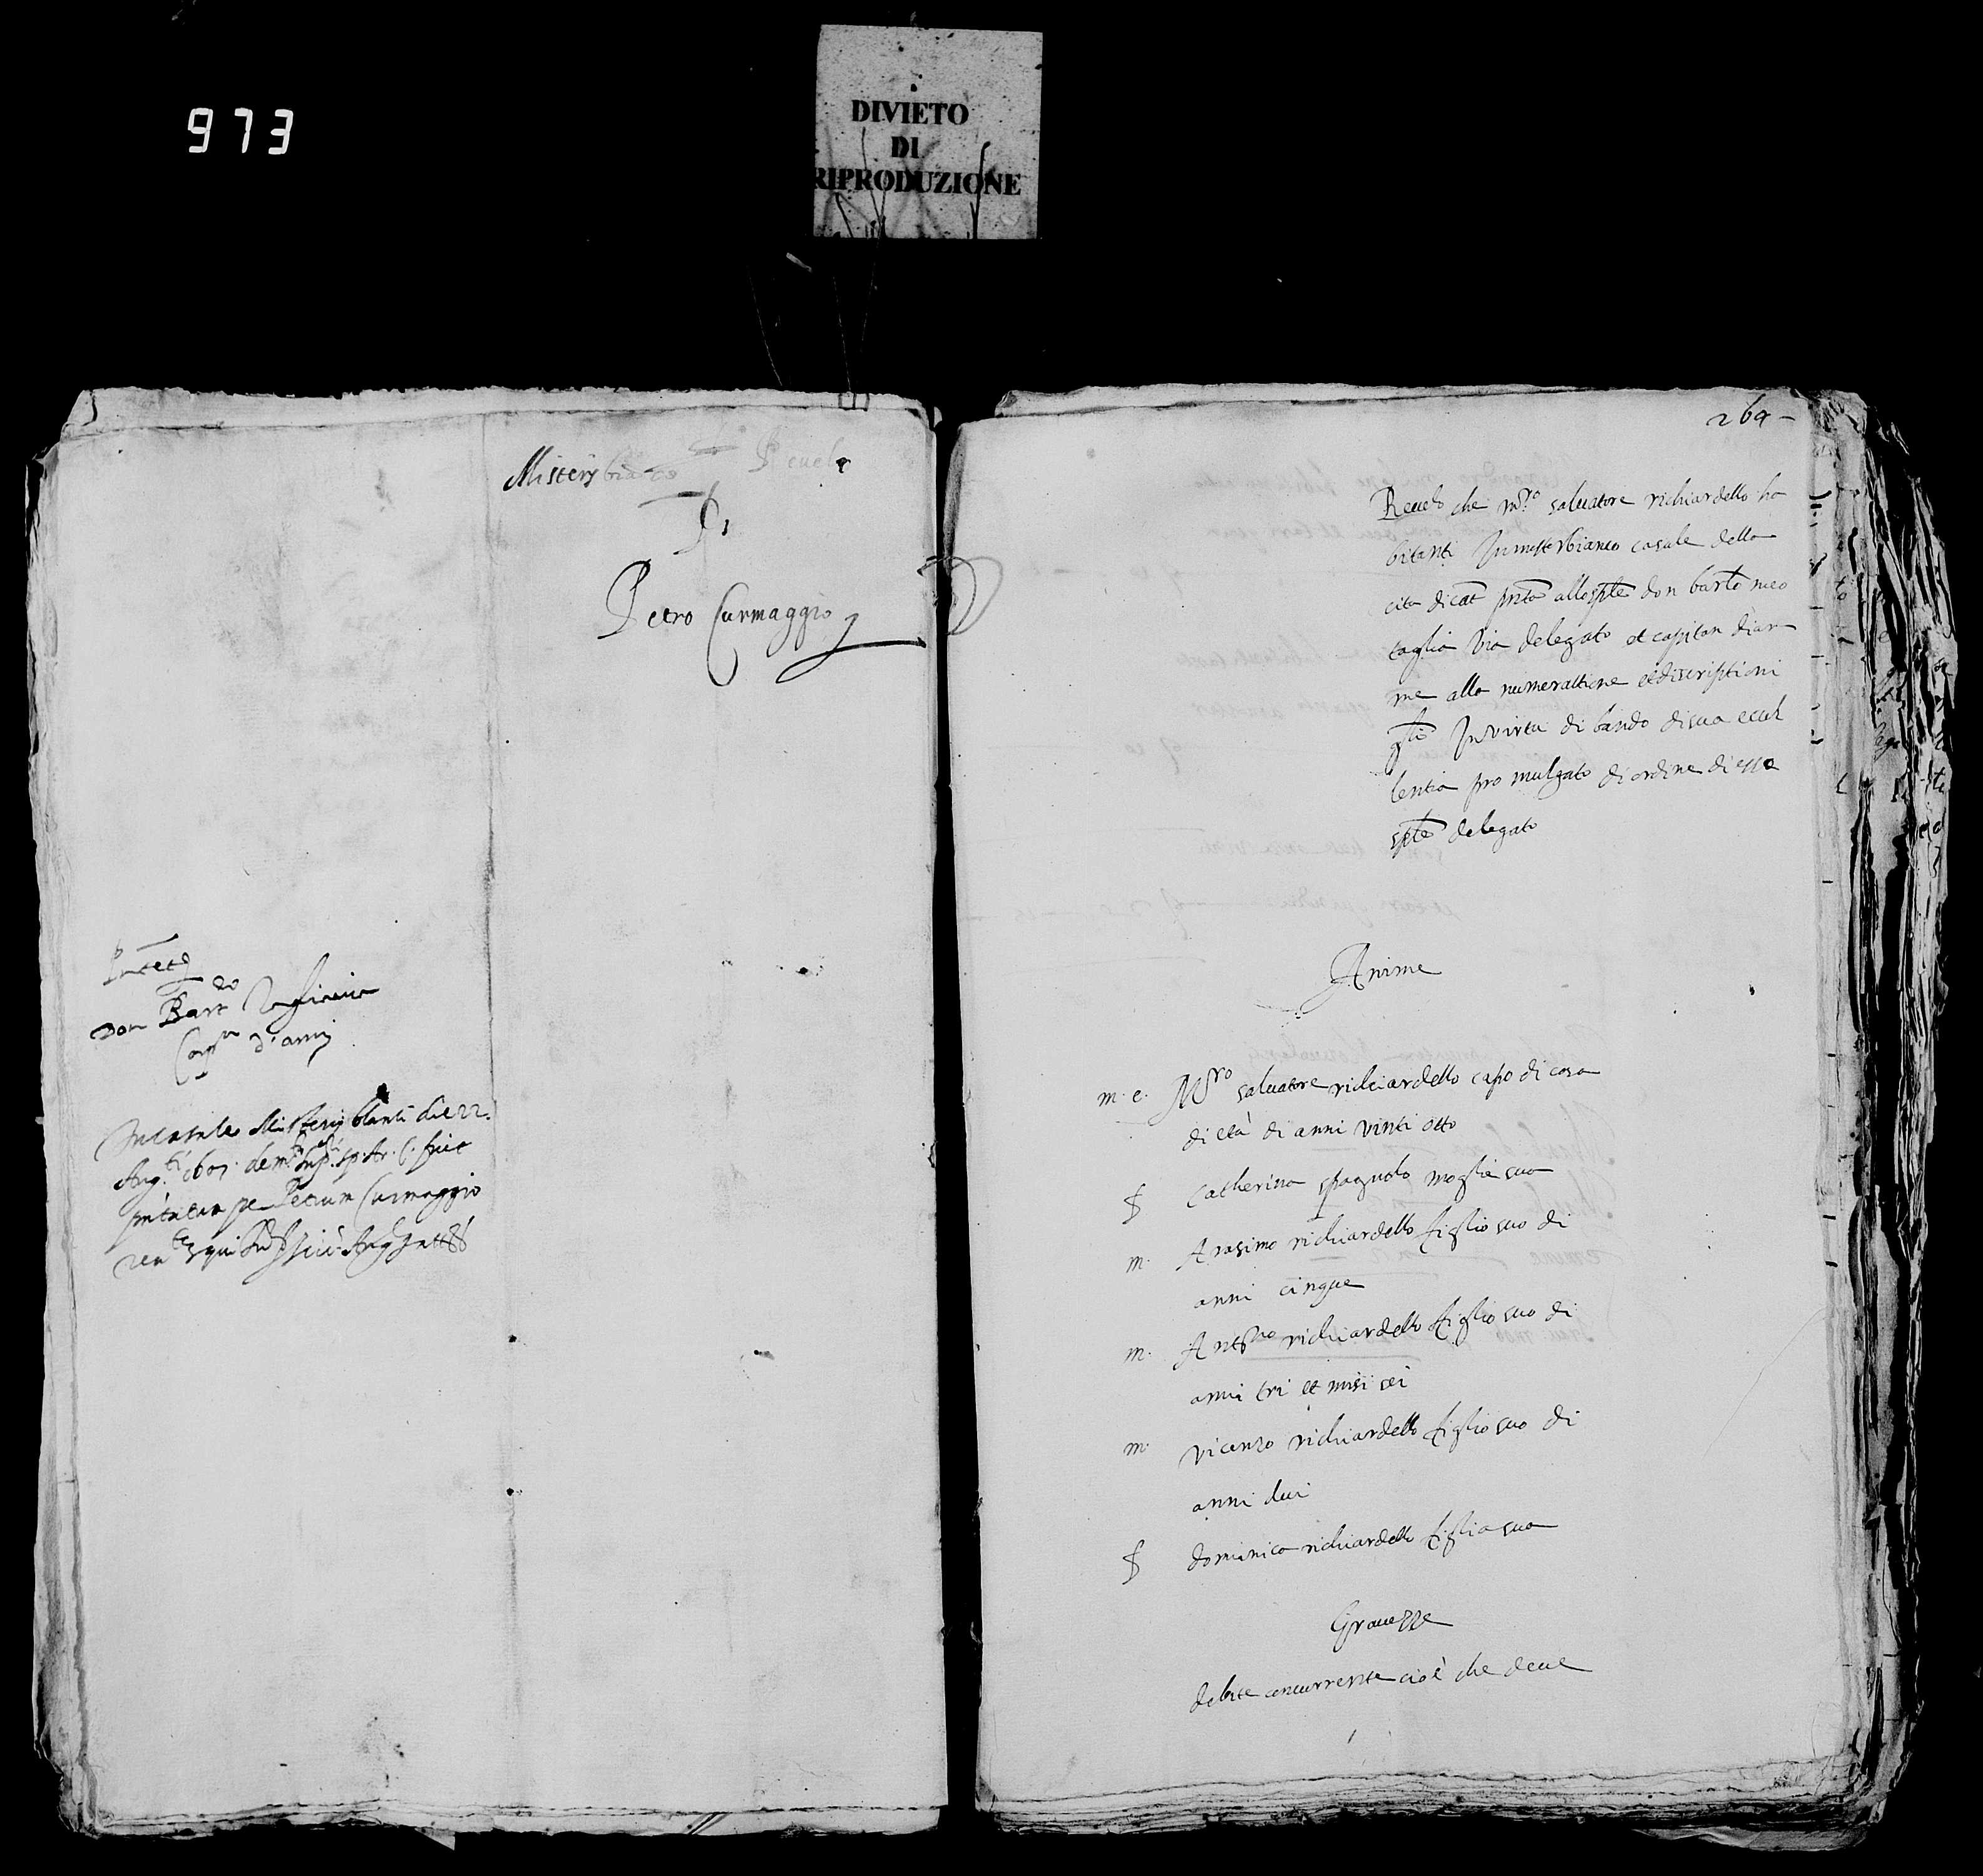 973
DIVIETO
DI
RIPRODUZIONE
Misterbianco Revelo
Di
Petro Curmaggio
Don Bart.o Tagliavia
Cap.n d'armi
In casale Misterij blanci die 22
Aug.ti 1607
per Petrum Curmaggio
269
Revelo che m.ro salvatore richiardello ha
bitanti In misterbianco casale della
cita di cat. pnto. allo spte. don barto meo
taglia via delegato et capitan di ar
me alla numerattione et discriptioni
In virtu di bando di sua eccel
lentia pro mulgato di ordine di esso
spte. delegato
Anime
m. c. M.ro salvatore richiardello capo di casa
di eta di anni vinti otto
f Catherina spagnolo moglie sua
m. Arasimo richiardello figlio suo di
anni cinque
m. Ant.no richiardello figlio suo di
anni tri et misi sei
m. vicenzo richiardello figlio suo di
anni dui
f dominica richiardello figlia sua
Gravezze
debite concurrente cioè che deve